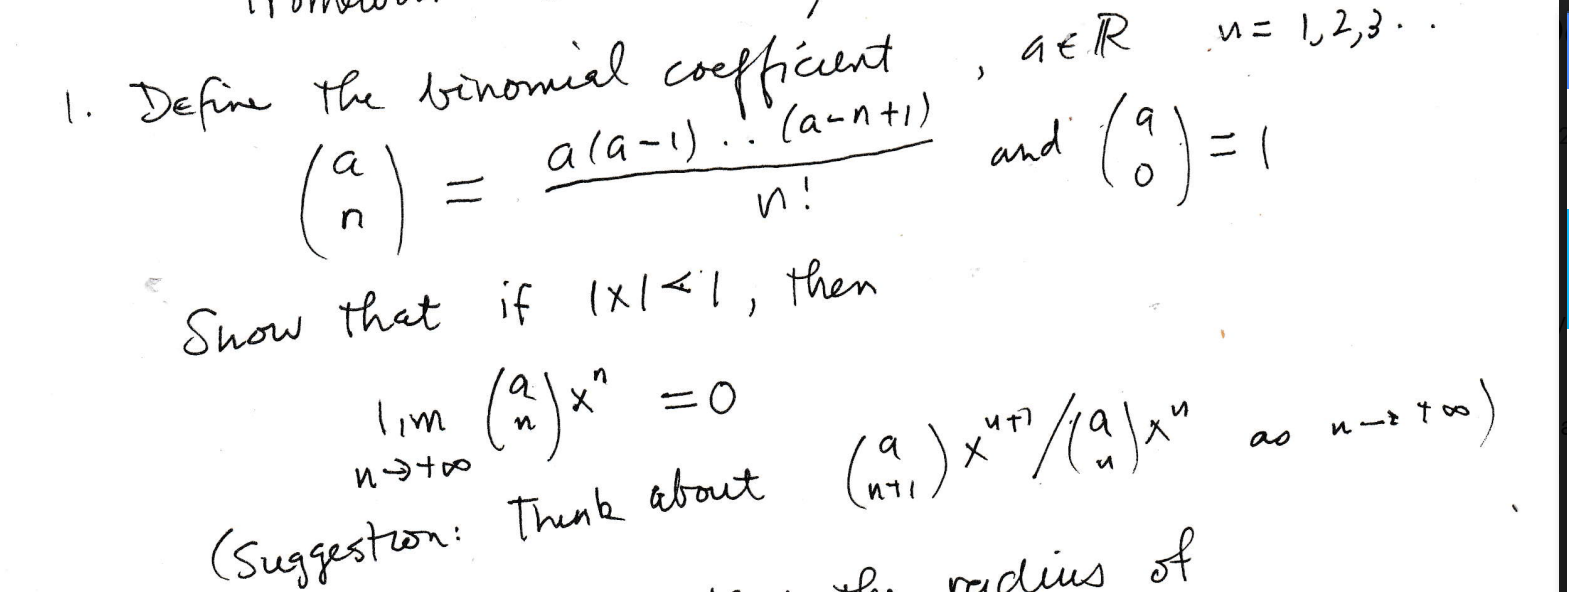 1. Define the binomial coefficient, a ∈ ℝ n = 1,2,3..
(a n) = a(a-1)..(a-n+1) / n! and (a 0) = 1
Show that if |x|<1, then
lim n→+∞ (a n) x^n = 0
(Suggestion: Think about (a n+1) x^{n+1} / (a n) x^n as n→+∞)
the radius of